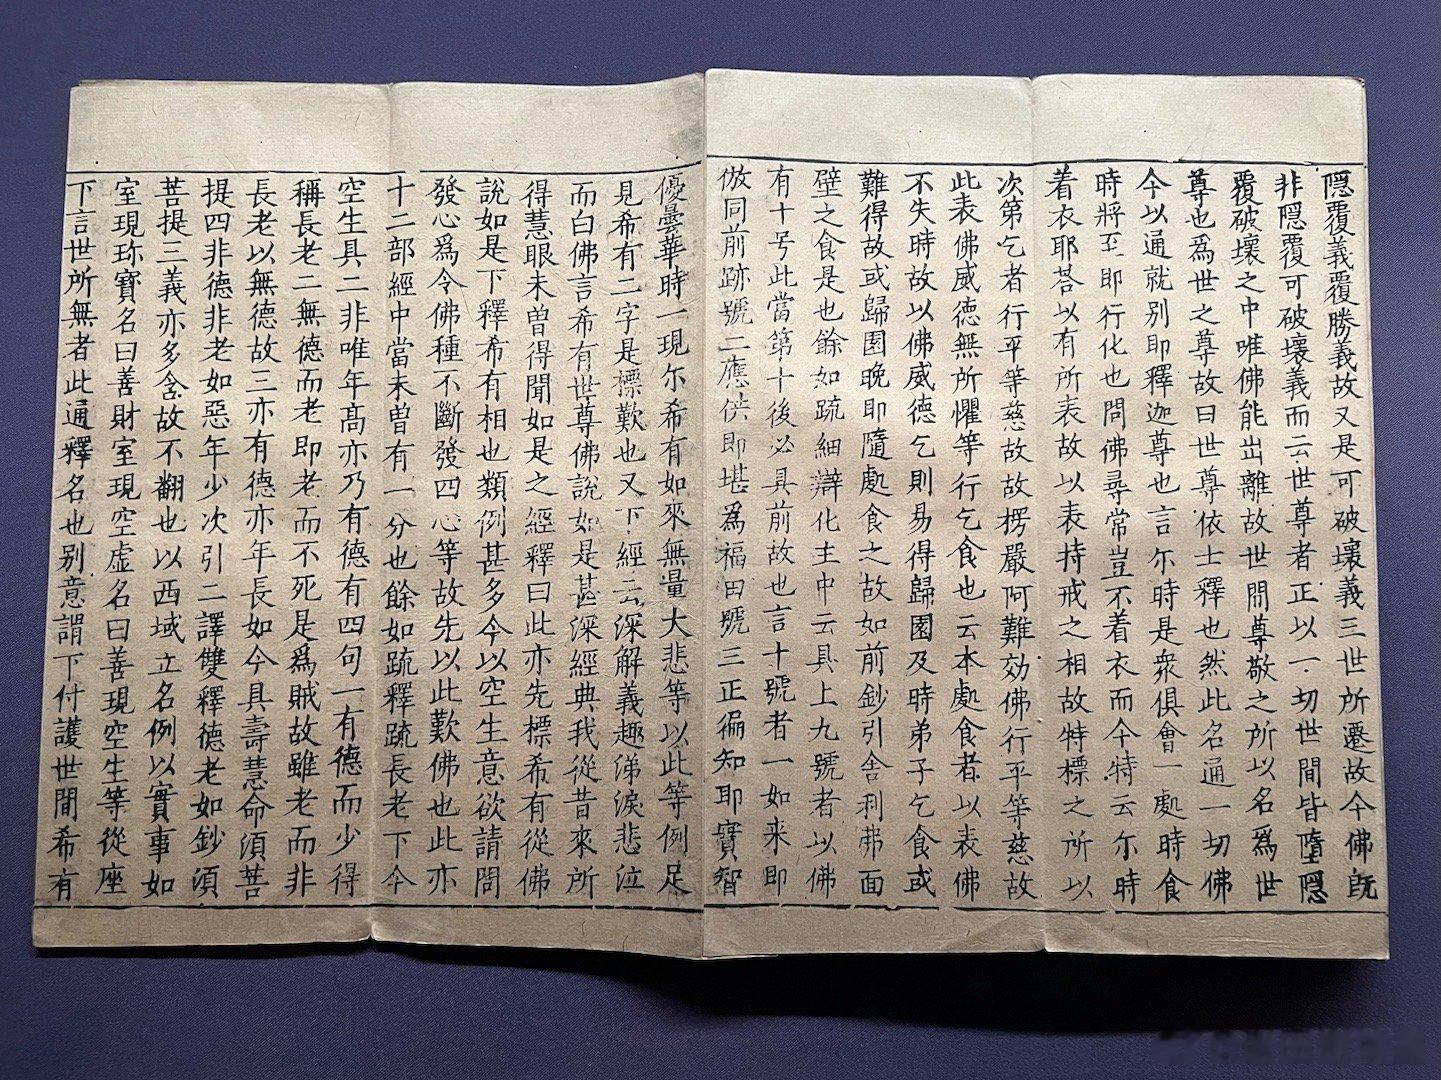 隠覆義覆勝義故又是可破壞義三世所遷故今佛旣
非隠覆可破壞義而云世尊者正以一切世間皆墮隠
覆破壞之中唯佛能出離故世間尊敬之所以名爲世
尊也爲世之尊故曰世尊依士釋也然此名通一切佛
今以通就别即釋迦尊也言尓時是衆俱會一處時食
時將至即行化也問佛尋常豈不着衣而今特云尓時
着衣耶荅以有所表故以表持戒之相故特標之所以
次第乞者行平等慈故故楞嚴阿難効佛行平等慈故
此表佛威德無所懼等行乞食也云本處食者以表佛
不失時故以佛威德乞則易得歸園及時弟子乞食或
難得故或歸園晚即隨處食之故如前鈔引舍利弗面
壁之食是也餘如䟽細辯化主中云具上九號者以佛
有十号此當第十後必具前故也言十號者一如来即
倣同前跡號二應供即堪爲福田號三正徧知耶實智
優曇華時一現尓希有如來無量大悲等以此等例足
見希有二字是標歎也又下經云深解義趣涕淚悲泣
而白佛言希有世尊佛說如是甚深經典我從昔來所
得慧眼未曽得聞如是之經釋曰此亦先標希有從佛
說如是下釋希有相也類例甚多今以空生意欲請問
發心爲令佛種不斷發四心等故先以此歎佛也此亦
十二部經中當未曽有一分也餘如䟽釋䟽長老下今
空生具二非唯年髙亦乃有德有四句一有德而少得
稱長老二無德而老即老而不死是爲賊故雖老而非
長老以無德故三亦有德亦年長如今具壽慧命須菩
提四非德非老如惡年少次引二譯雙釋德老如鈔須
菩提三義亦多含故不翻也以西域立名例以實事如
室現珎寳名曰善財室現空虚名曰善現空生等從座
下言世所無者此通釋名也别意謂下付護世間希有